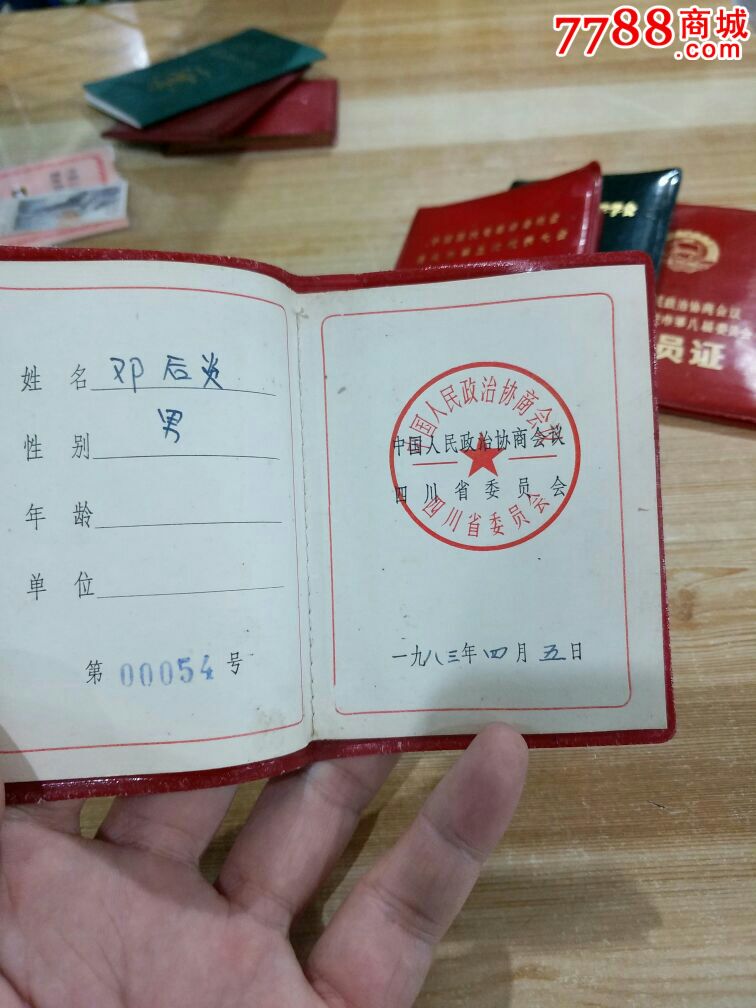 7788商城
.com
学会
政治协商会议
市第八届委员会
员证
姓名 邓后炎
性别 男
年龄
单位
第 00054 号
中国人民政治协商会议
中国人民政治协商会议
四川省委员会
四川省委员会
一九八三年四月五日